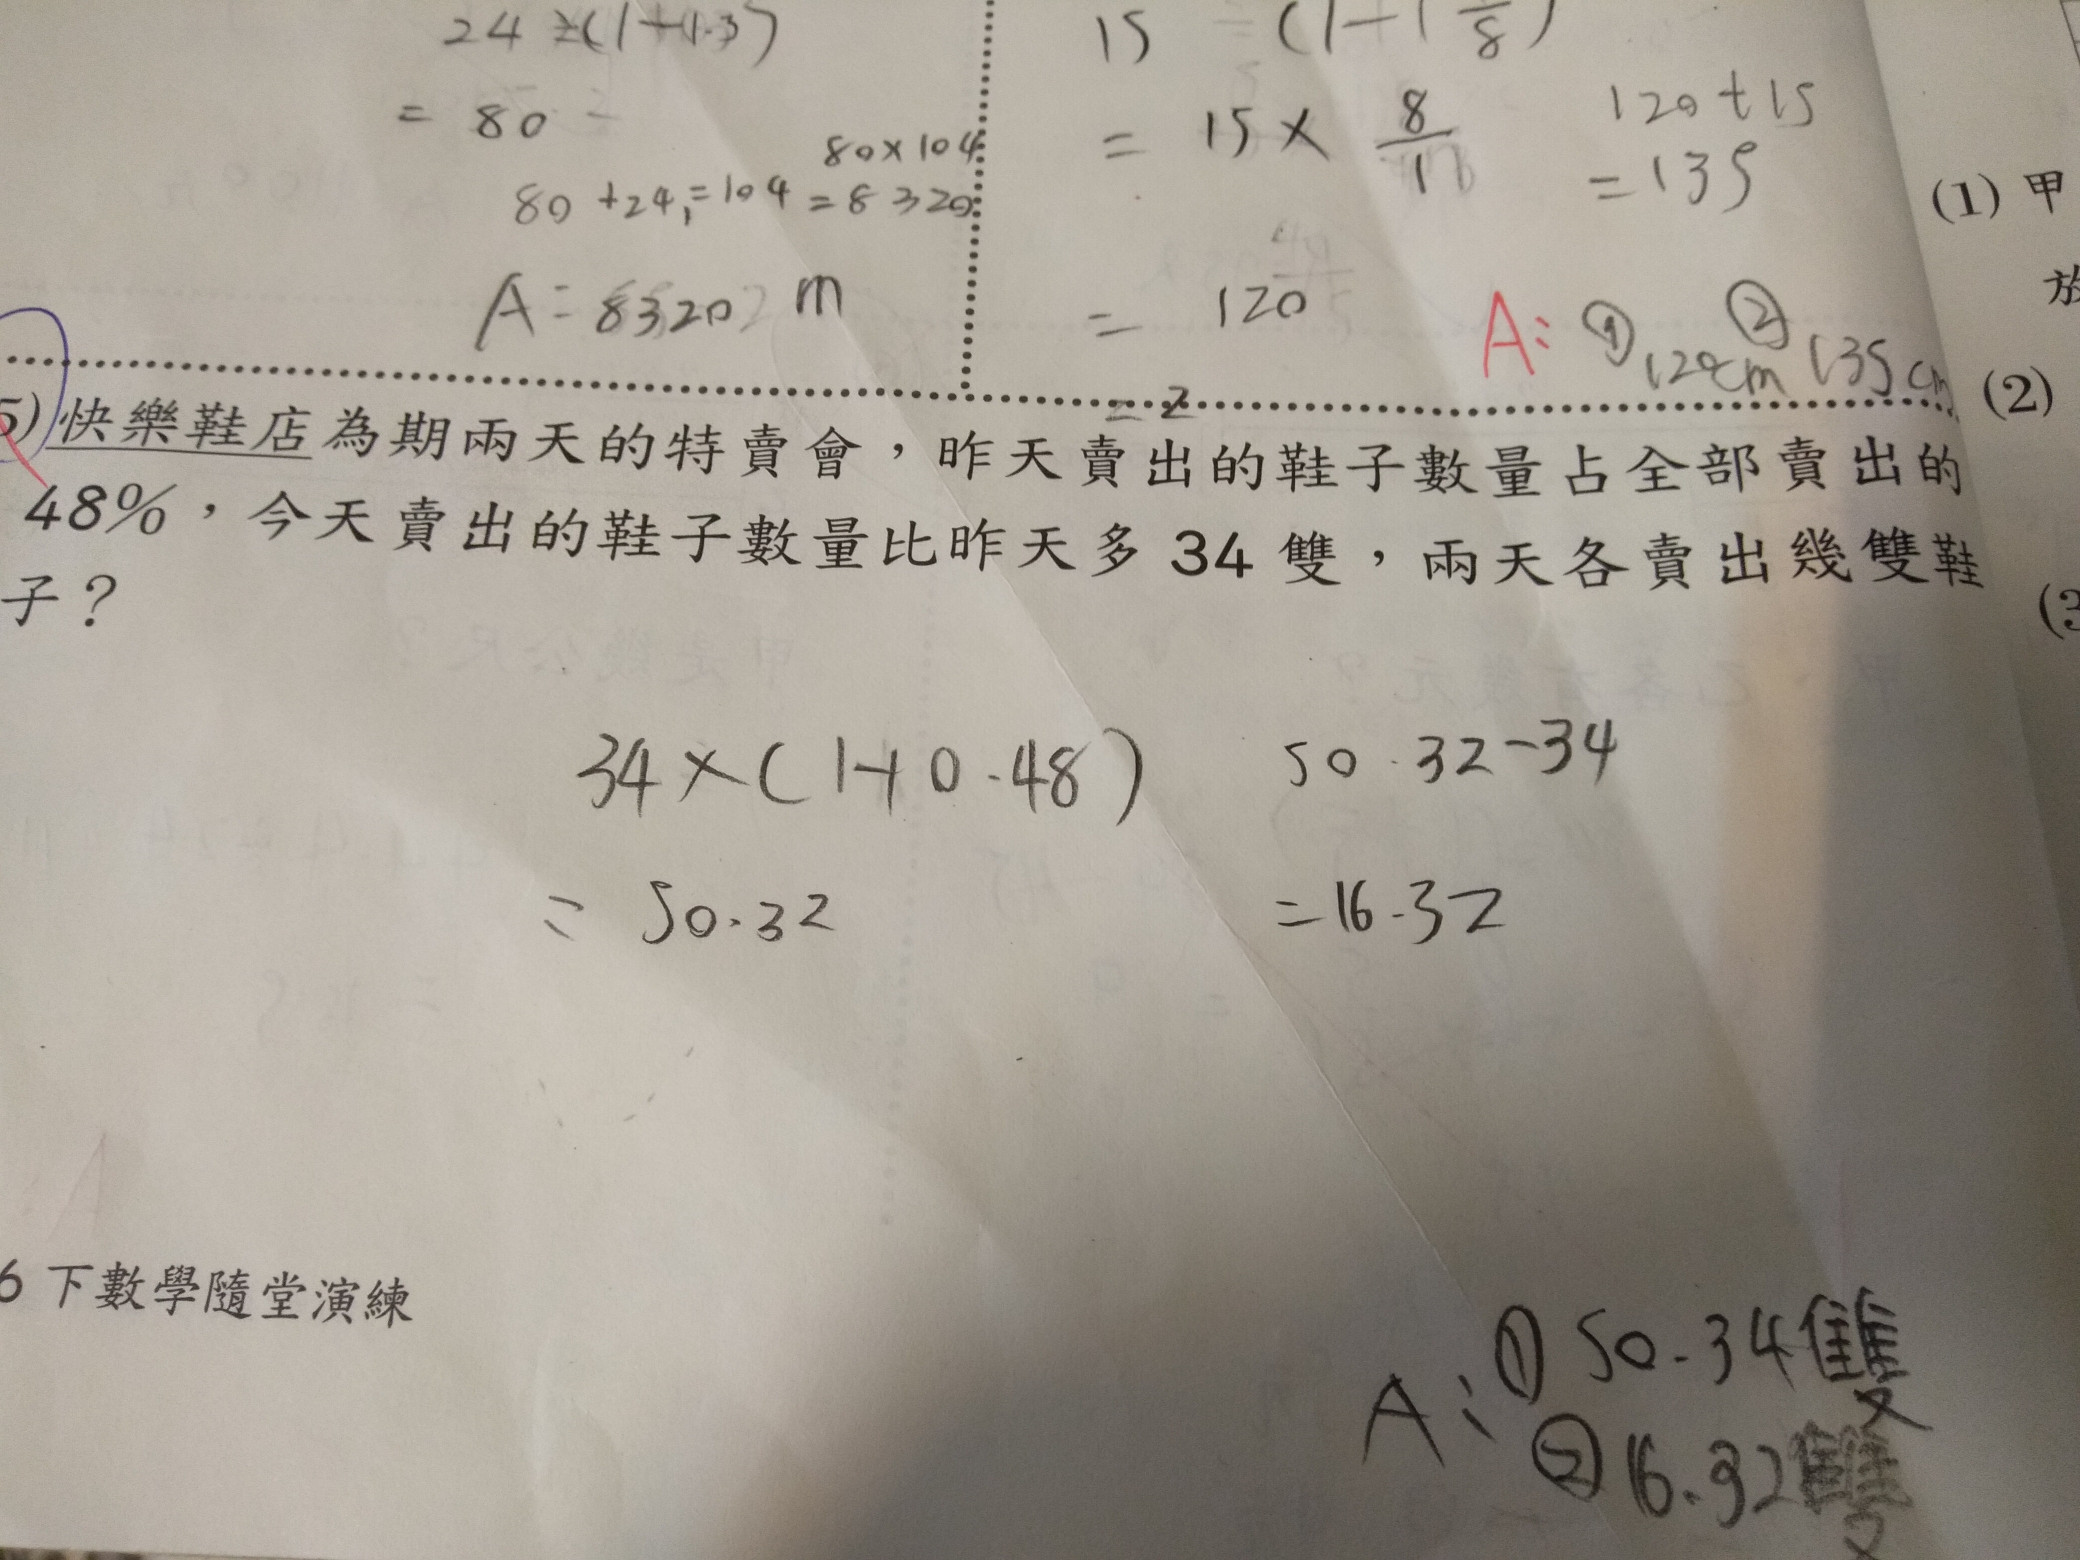 24 ÷(1-
= 80
80×104
80 +24,=104 =8320
A= 8320 m
15 (1-1 /8)
= 15 × 8/1
120+15
=135
= 120
A: ① 120cm ② 135cm
= 2
5) 快樂鞋店為期兩天的特賣會，昨天賣出的鞋子數量占全部賣出的
48%，今天賣出的鞋子數量比昨天多 34 雙，兩天各賣出幾雙鞋
子？
34×(1+0.48) 50.32-34
= 50.32 =16.32
6 下數學隨堂演練
A: ① 50.34雙
② 16.32雙
(1) 甲
放
(2)
(3